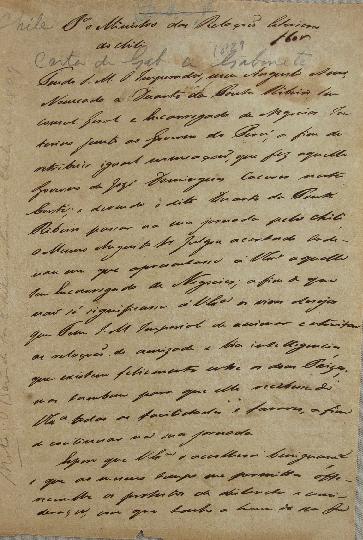 Chile
Pª o Ministro das Relações Exteriores
do Chile
Carta de Gab. a Gabinete
Tendo S. M. I. Imperador, meu Augusto Amo,
Nomeado a Duarte da Ponte Ribeiro seu
Consul Geral e Encarregado de Negocios In-
terino junto ao Governo do Perú, a fim de
retribuir igual nomeação, que fez aquelle
Governo de José Domingos Caceres nesta
Corte; e devendo o dito Duarte da Ponte
Ribeiro passar na sua jornada pelo Chile
o Mesmo Augusto Sr. julgou acertado
que apresentasse a VExª aquelle
seu Encarregado de Negocios, a fim de que
não só significasse a VExª os vivos desejos
que Tem S. M. Imperial de animar e estreitar
as relações de amizade e boa intelligencia
que existem felizmente entre os dous Paizes,
mas tambem para que elle recebesse de
VExª todas as facilidades e favores, a fim
de continuar na sua jornada.
Espero que VExª o acolherá benignamte
e que ao mesmo tempo me permitta
os protestos da distincta consi-
deração, com que tenho a honra de